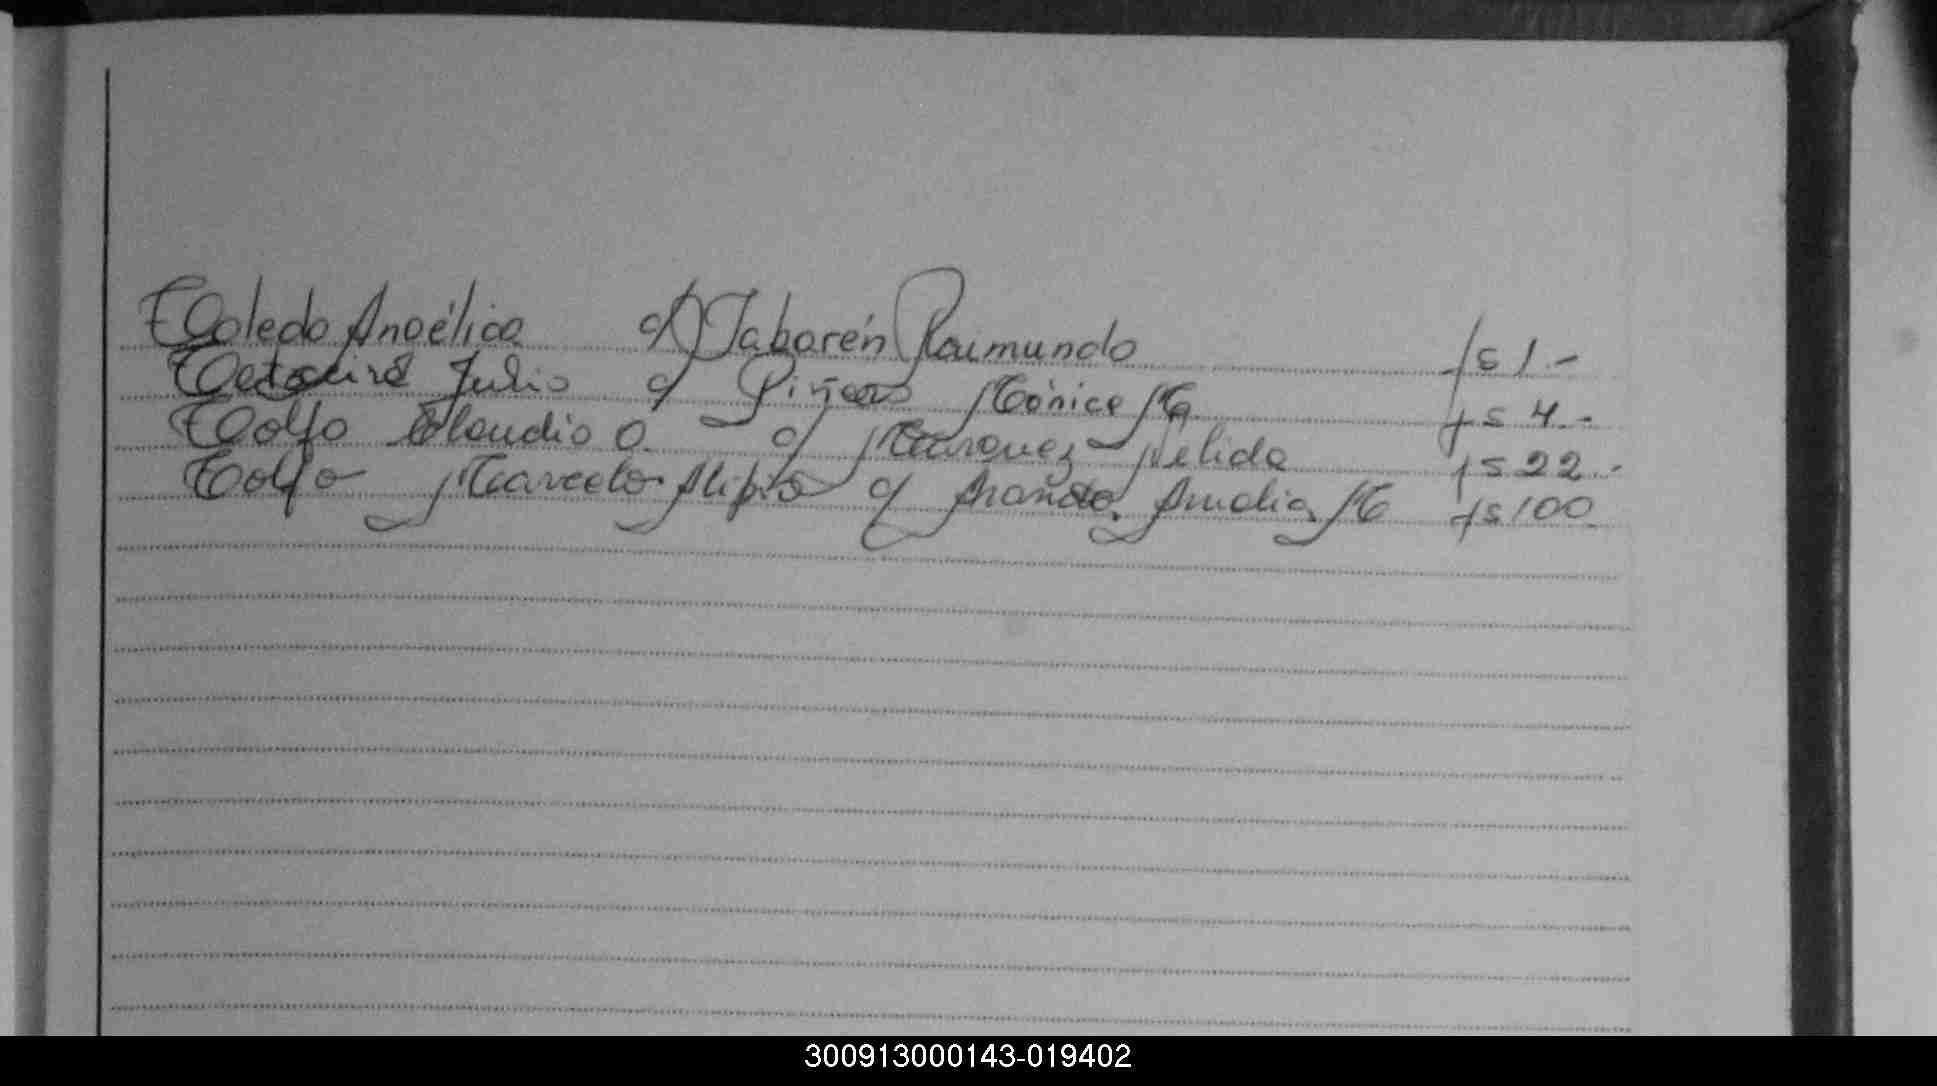 Toledo Angélica c/ Jabarén Raimundo fs 1.-
Julio c/ Piñero Mónica M fs 4.-
Tolfo Claudio O. c/ Marquez Nélida fs 22.-
Tolfo Marcelo Alipio c/ Aranda Amalia M fs 100
300913000143-019402